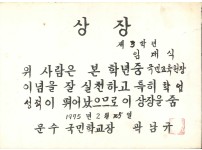 상장
제 3 학년
임 재 식
위 사람은 본 학년중 국민교육헌장
이념을 잘 실천하고 특히 학업
성적이 뛰어났으므로 이 상장을 줌
1995 년 2 월 25일
문수 국민학교장 곽남규